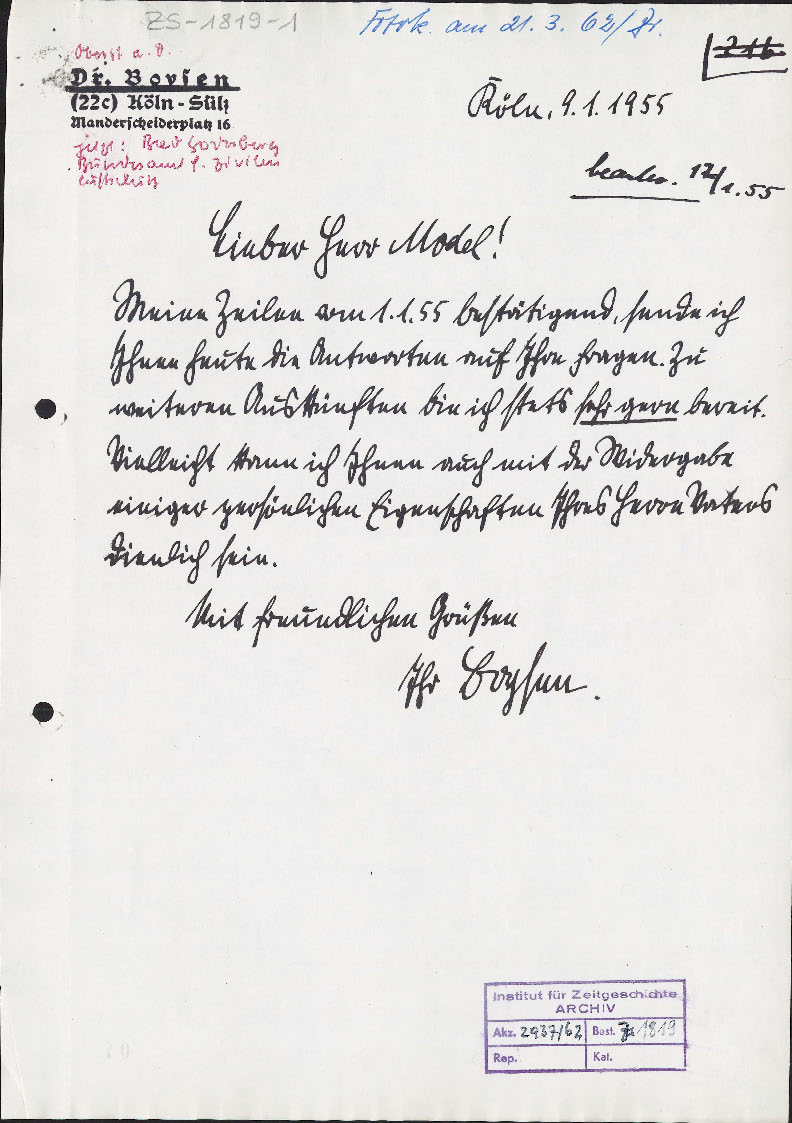 ZS-1819-1
Fotok. am 21.3.62/Gr.
216
Oberst a. D.
Dr. Boysen
(22c) Köln-Sülz
Manderscheiderplatz 16
jetzt: Bad Godesberg
Bundesamt f. zivilen
Luftschutz
Köln, 9.1.1955
beantw. 12/1.55
Lieber Herr Model!
Meine Zeilen vom 1.1.55 bestätigend, sende ich
Ihnen heute die Antworten auf Ihre Fragen. Zu
weiteren Auskünften bin ich stets sehr gern bereit.
Vielleicht kann ich Ihnen auch mit der Widergabe
einiger persönlichen Eigenschaften Ihres Herrn Vaters
dienlich sein.
Mit freundlichen Grüßen
Ihr Boysen.
Institut für Zeitgeschichte
ARCHIV
Akz. 2937/62 Best. ZS 1819
Rep. Kat.